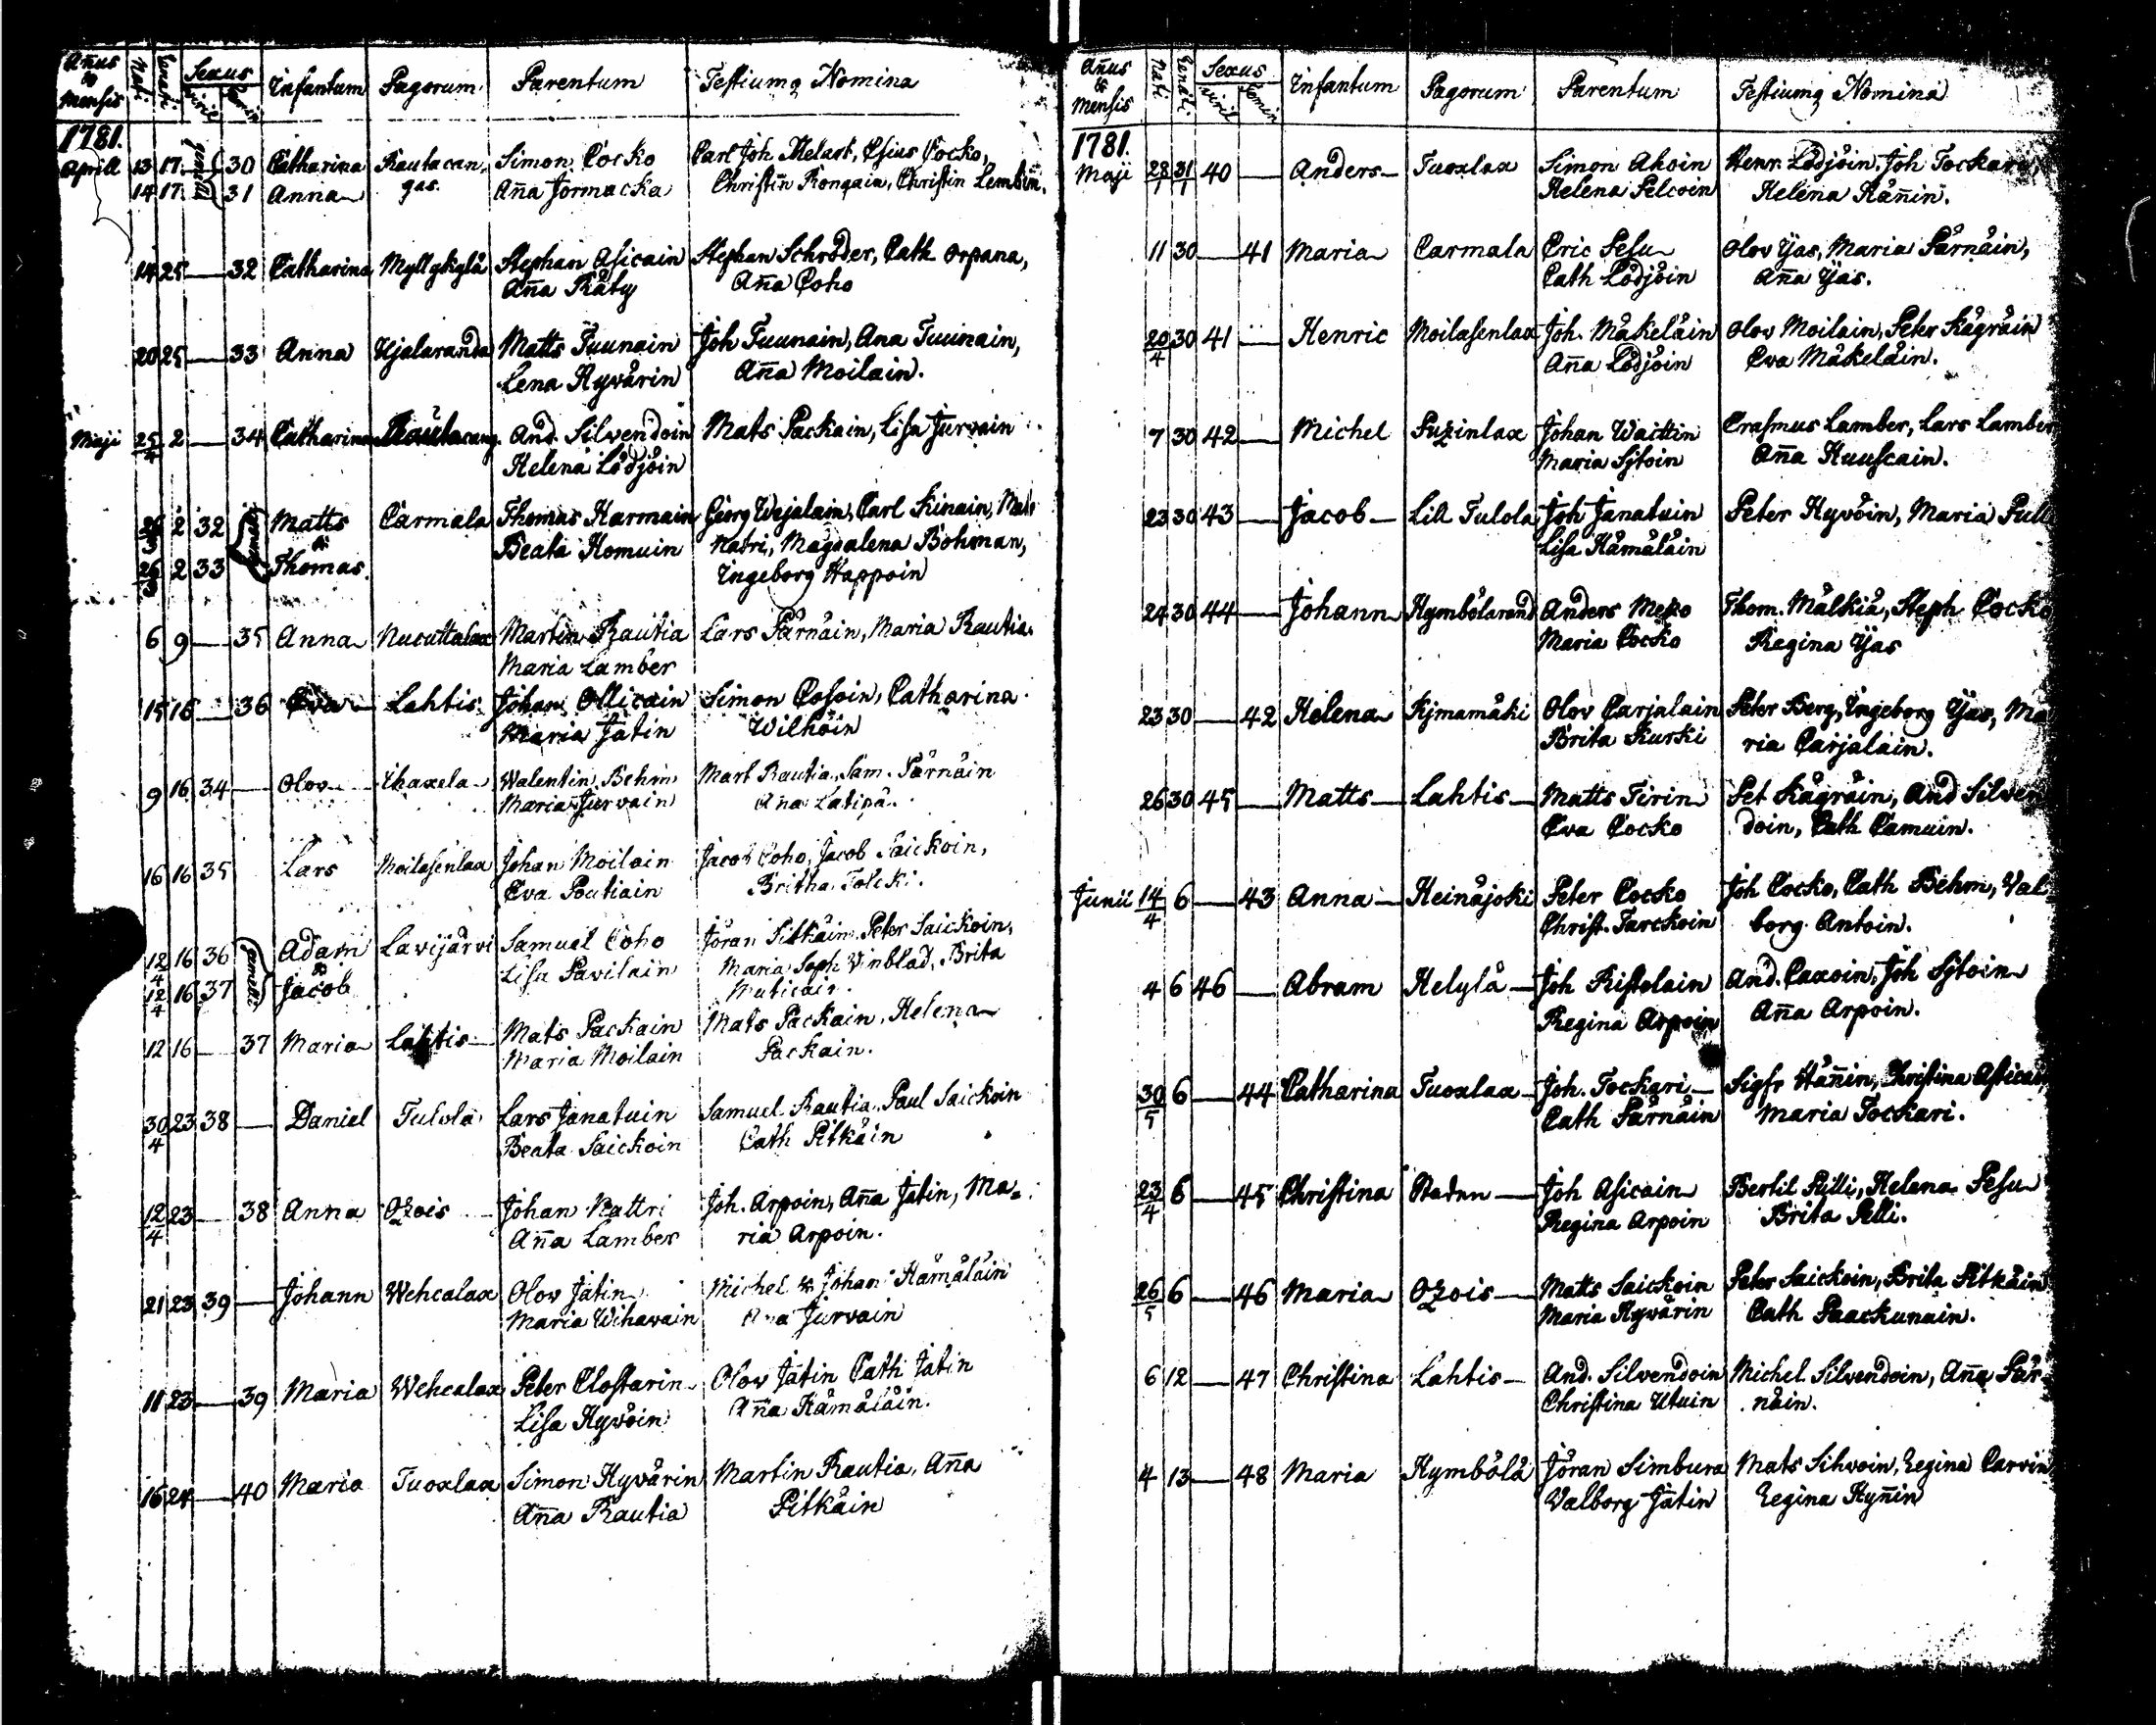 Añus & Mensis Nati Renati Sexus Viril Femin Infantum Pagorum Parentum Testiumq Nomina
1781.
Aprill 13 17 — gemelli 30 Catharina Rautacan, Simon Cocko Carl Joh Melart, Cosko,
14 17 31 Anna gas. Aña Jormacka Christin Rongain, Christin Lembin.
14 25 — 32 Catharina Myllykylä Stephan Asicain Stephan Schröder, Cath Orpana,
Aña Räty Aña Coho
20 25 — 33 Anna Hjalaranda Matts Tuunain Joh Tuunain, Ana Tuunain,
Lena Hyvärin Aña Moilain.
Maji 25/4 2 — 34 Catharina Rautacang. And. Silvendoin Mats Packain, Lisa Jurvain
Helena Lödjöin
26/3 2 32 gemelli Matts & Carmala Thomas Harmain Georg Wejalain, Carl Kinain, Mats
26/3 2 33 Thomas. Beata Homuin Natri, Magdalena Bohman,
Ingeborg Happoin
6 9 — 35 Anna Nucuttalax Martin Rautia Lars Pärnäin, Maria Rautia
Maria Lamber
15 16 — 36 Eva Lahtis. Johan Ollicain Simon Cosoin, Catharina
Maria Jätin Wilhöin
9 16 34 — Olov Ihaxela Walentin Behm Mart Rautia, Sam. Pärnäin
Maria Jurvain Ana Latipä.
16 16 35 Lars Moilasenlax Johan Moilain Jacob Coho, Jacob Saickoin,
Eva Poutiain Britha Tolcki.
12/4 16 36 gemelli Adam & Lavijärvi Samuel Coho Jöran Pitkäin, Peter Saickoin,
12/4 16 37 Jacob Lisa Pavilain Maria Soph Winblad, Brita
Muticain.
12 16 — 37 Maria Lahtis — Mats Packain Mats Packain, Helena
Maria Moilain Packain.
30/4 23 38 — Daniel Tulola Lars Janatuin Samuel Rautia, Paul Saickoin
Beata Saickoin Cath Pitkäin
12/4 23 — 38 Anna Ozois — Johan Nattri Joh. Arpoin, Aña Jätin, Ma=
Aña Lamber ria Arpoin.
21 23 39 — Johann Wehcalax Olov Jätin Michel & Johan Hämäläin
Maria Wihavain Ana Jurvain
11 23 — 39 Maria Wehcalax Peter Clostarin Olov Jätin Cath Jätin
Lisa Hyvöin Aña Hämäläin.
16 24 — 40 Maria Tuoxlax Simon Hyvärin Martin Rautia, Aña
Aña Rautia Pitkäin
Añus & Mensis Nati Renati Sexus Viril Femin Infantum Pagorum Parentum Testiumq Nomina
1781.
Maji 28/1 31/1 40 — Anders — Tuoxlax Simon Ahoin Henr. Lödjöin, Joh Tockari,
Helena Pelcoin Helena Häñin.
11 30 — 41 Maria Carmala Eric Pesu Olov Yas, Maria Pärnäin,
Cath Lödjöin Aña Yas.
20/4 30 41 — Henric Moilasenlax Joh. Mäkeläin Olov Moilain, Peter Kägräin
Aña Lödjöin Eva Mäkeläin.
7 30 42 — Michel Puzinlax Johan Waittin Erasmus Lamber, Lars Lamber
Maria Sjtoin Aña Huuscain.
23 30 43 — Jacob — Lill Tulola Joh Janatuin Peter Hyvöin, Maria Pull
Lisa Hämäläin
24 30 44 — Johann Hymbölarand Anders Mero Thom. Mälkiä, Steph Cocko
Maria Cocko Regina Yas
23 30 — 42 Helena Kjmamäki Olov Carjalain Peter Berg, Ingeborg Yas, Ma
Brita Kurki ria Carjalain.
26 30 45 — Matts — Lahtis — Matts Tirin Pet Kägräin, And Silven
Eva Cocko doin, Cath Camuin.
Junii 14/4 6 — 43 Anna — Heinäjoki Peter Cocko Joh Cocko, Cath Behm, Val
Christ. Tarckoin borg Antoin.
4 6 46 — Abram Helylä — Joh Ristolain And. Caxoin, Joh Sjtoin
Regina Arpoin Aña Arpoin.
30/5 6 — 44 Catharina Tuoxlax — Joh. Tockari — Sigfr Häñin, Christina Asicain,
Cath Pärnäin Maria Tockari.
23/4 6 — 45 Christina Staden — Joh Asicain Bertil Pilli, Helena Pesu
Regina Arpoin Brita Pilli.
26/5 6 — 46 Maria Ozois — Matts Saickoin Peter Saickoin, Brita Pitkäin
Maria Hyvärin Cath Paackunain.
6 12 — 47 Christina Lahtis — And. Silvendoin Michel Silvendoin, Aña Pär=
Christina Utuin näin.
4 13 — 48 Maria Hymbölä Jöran Simbura Mats Sihvoin, Regina Carvin
Valborg Jätin Regina Hyñin